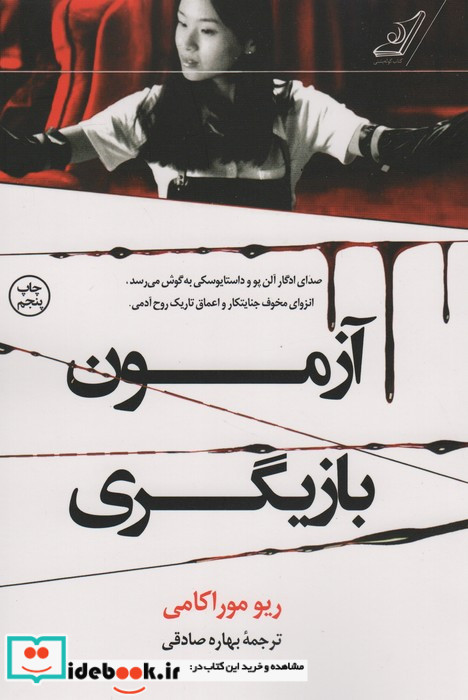 صدای ادگار آلن پو و داستایوسکی به گوش می‌رسد،
انزوای مخوف جنایتکار و اعماق تاریک روح آدمی.
چاپ
پنجم
آزمون
بازیگری
ریو موراکامی
ترجمهٔ بهاره صادقی
idebook.ir
مشاهده و خرید این کتاب در: